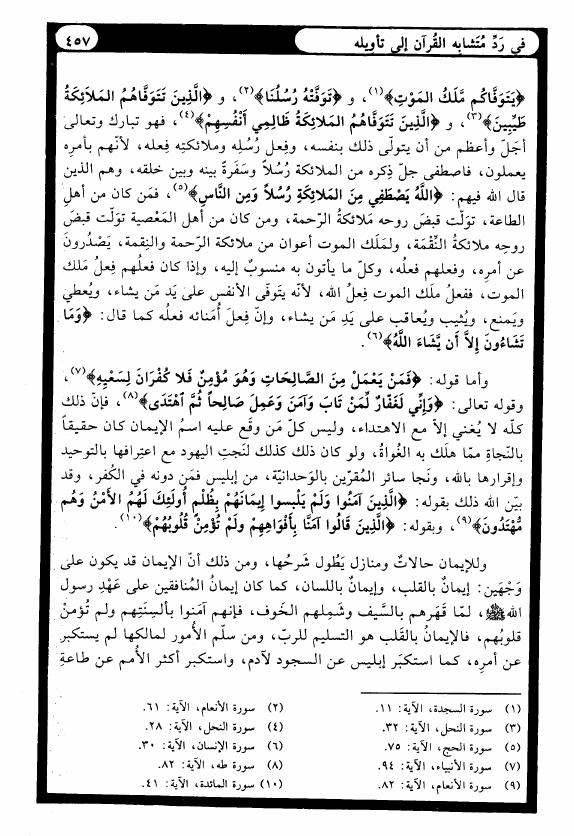 في رَدِّ مُتَشابه القُرآن إلى تأويله
٤٥٧
﴿يَتَوَفَّاكُم مَّلَكُ المَوْتِ﴾(١)، و ﴿تَوَفَّتْهُ رُسُلُنَا﴾(٢)، و ﴿الَّذِينَ تَتَوَفَّاهُمُ المَلاَئِكَةُ
طَيِّبِينَ﴾(٣)، و ﴿الَّذِينَ تَتَوَفَّاهُمُ المَلائِكَةُ ظَالِمِي أَنْفُسِهِمْ﴾(٤)، فهو تبارك وتعالى
أجَلّ وأعظم من أن يتولّى ذلك بنفسه، وفِعل رُسُلِه وملائكتِه فِعله، لأنّهم بأمرِه
يعملون، فاصطفى جلّ ذِكره من الملائكة رُسُلاً وسَفَرةً بينه وبين خلقه، وهم الذين
قال الله فيهم: ﴿اللَّهُ يَصْطَفِي مِنَ المَلائِكَةِ رُسُلاً وَمِنَ النَّاسِ﴾(٥)، فمَن كان من أهلِ
الطاعة، تولّت قبضَ روحه مَلائكةُ الرحمة، ومن كان من أهل المَعْصية تولّت قبضَ
روحِه ملائكةُ النِّقْمَة، ولمَلَك الموت أعوان من ملائكة الرحمة والنِقمة، يَصْدُرُونَ
عن أمرِه، وفعلهم فعلُه، وكلّ ما يأتون به منسوبٌ إليه، وإذا كان فعلُهم فِعلُ مَلك
الموت، ففعلُ ملَك الموت فِعلُ الله، لأنّه يَتوفّى الأنفس علىٰ يَدِ مَن يشاء، ويُعطي
ويَمنع، ويُثيب ويُعاقب على يَدِ مَن يشاء، وإنّ فِعلَ أُمَنائه فعلُه كما قال: ﴿وَمَا
تَشَاءُونَ إِلاَّ أَن يَشَاءَ اللَّهُ﴾(٦).
وأما قوله: ﴿فَمَنْ يَعْمَلْ مِنَ الصَّالِحَاتِ وَهُوَ مُؤْمِنٌ فَلا كُفْرَانَ لِسَعْيِهِ﴾(٧)،
وقوله تعالى: ﴿وَإِنِّي لَغَفَّارٌ لِّمَنْ تَابَ وَآمَنَ وَعَمِلَ صَالِحاً ثُمَّ اهْتَدَى﴾(٨)، فإنّ ذلك
كلّه لا يُغني إلاّ مع الاهتداء، وليس كلّ مَن وقَع عليه اسمُ الإيمان كان حقيقاً
بالنّجاةِ ممّا هلَك به الغُواةُ، ولو كان ذلك كذلك لنَجتِ اليهود مع اعتِرافها بالتوحيد
وإقرارها بالله، ونَجا سائر المُقرّين بالوَحدانيّة، من إبليس فمَن دونه في الكُفر، وقد
بيّن الله ذلك بقوله: ﴿الَّذِينَ آمَنُوا وَلَمْ يَلْبِسوا إِيمَانَهُمْ بِظُلْمٍ أُولَئِكَ لَهُمُ الأَمْنُ وَهُم
مُّهْتَدُونَ﴾(٩)، وبقوله: ﴿الَّذِينَ قَالُوا آمَنَّا بِأَفْوَاهِهِمْ وَلَمْ تُؤْمِنْ قُلُوبُهُمْ﴾(١٠).
وللإيمان حالاتٌ ومنازل يَطُول شَرحُها، ومن ذلك أنّ الإيمان قد يكون على
وَجْهَين: إيمانٌ بالقلب، وإيمانٌ باللسان، كما كان إيمانُ المُنافقين على عَهْدِ رسول
الله ﷺ، لمّا قَهَرهم بالسَّيف وشَمِلهم الخَوف، فإنهم آمَنوا بألسِنَتِهم ولم تُؤمنُ
قلوبُهم، فالإيمانُ بالقَلب هو التسليم للربّ، ومن سلّم الأُمور لمالكها لم يستكبر
عن أمرِه، كما استكبَر إبليس عن السجود لآدم، واستكبر أكثر الأُمم عن طاعةِ
(١) سورة السجدة، الآية: ١١.
(٢) سورة الأنعام، الآية: ٦١.
(٣) سورة النحل، الآية: ٣٢.
(٤) سورة النحل، الآية: ٢٨.
(٥) سورة الحج، الآية: ٧٥.
(٦) سورة الإنسان، الآية: ٣٠.
(٧) سورة الأنبياء، الآية: ٩٤.
(٨) سورة طه، الآية: ٨٢.
(٩) سورة الأنعام، الآية: ٨٢.
(١٠) سورة المائدة، الآية: ٤١.